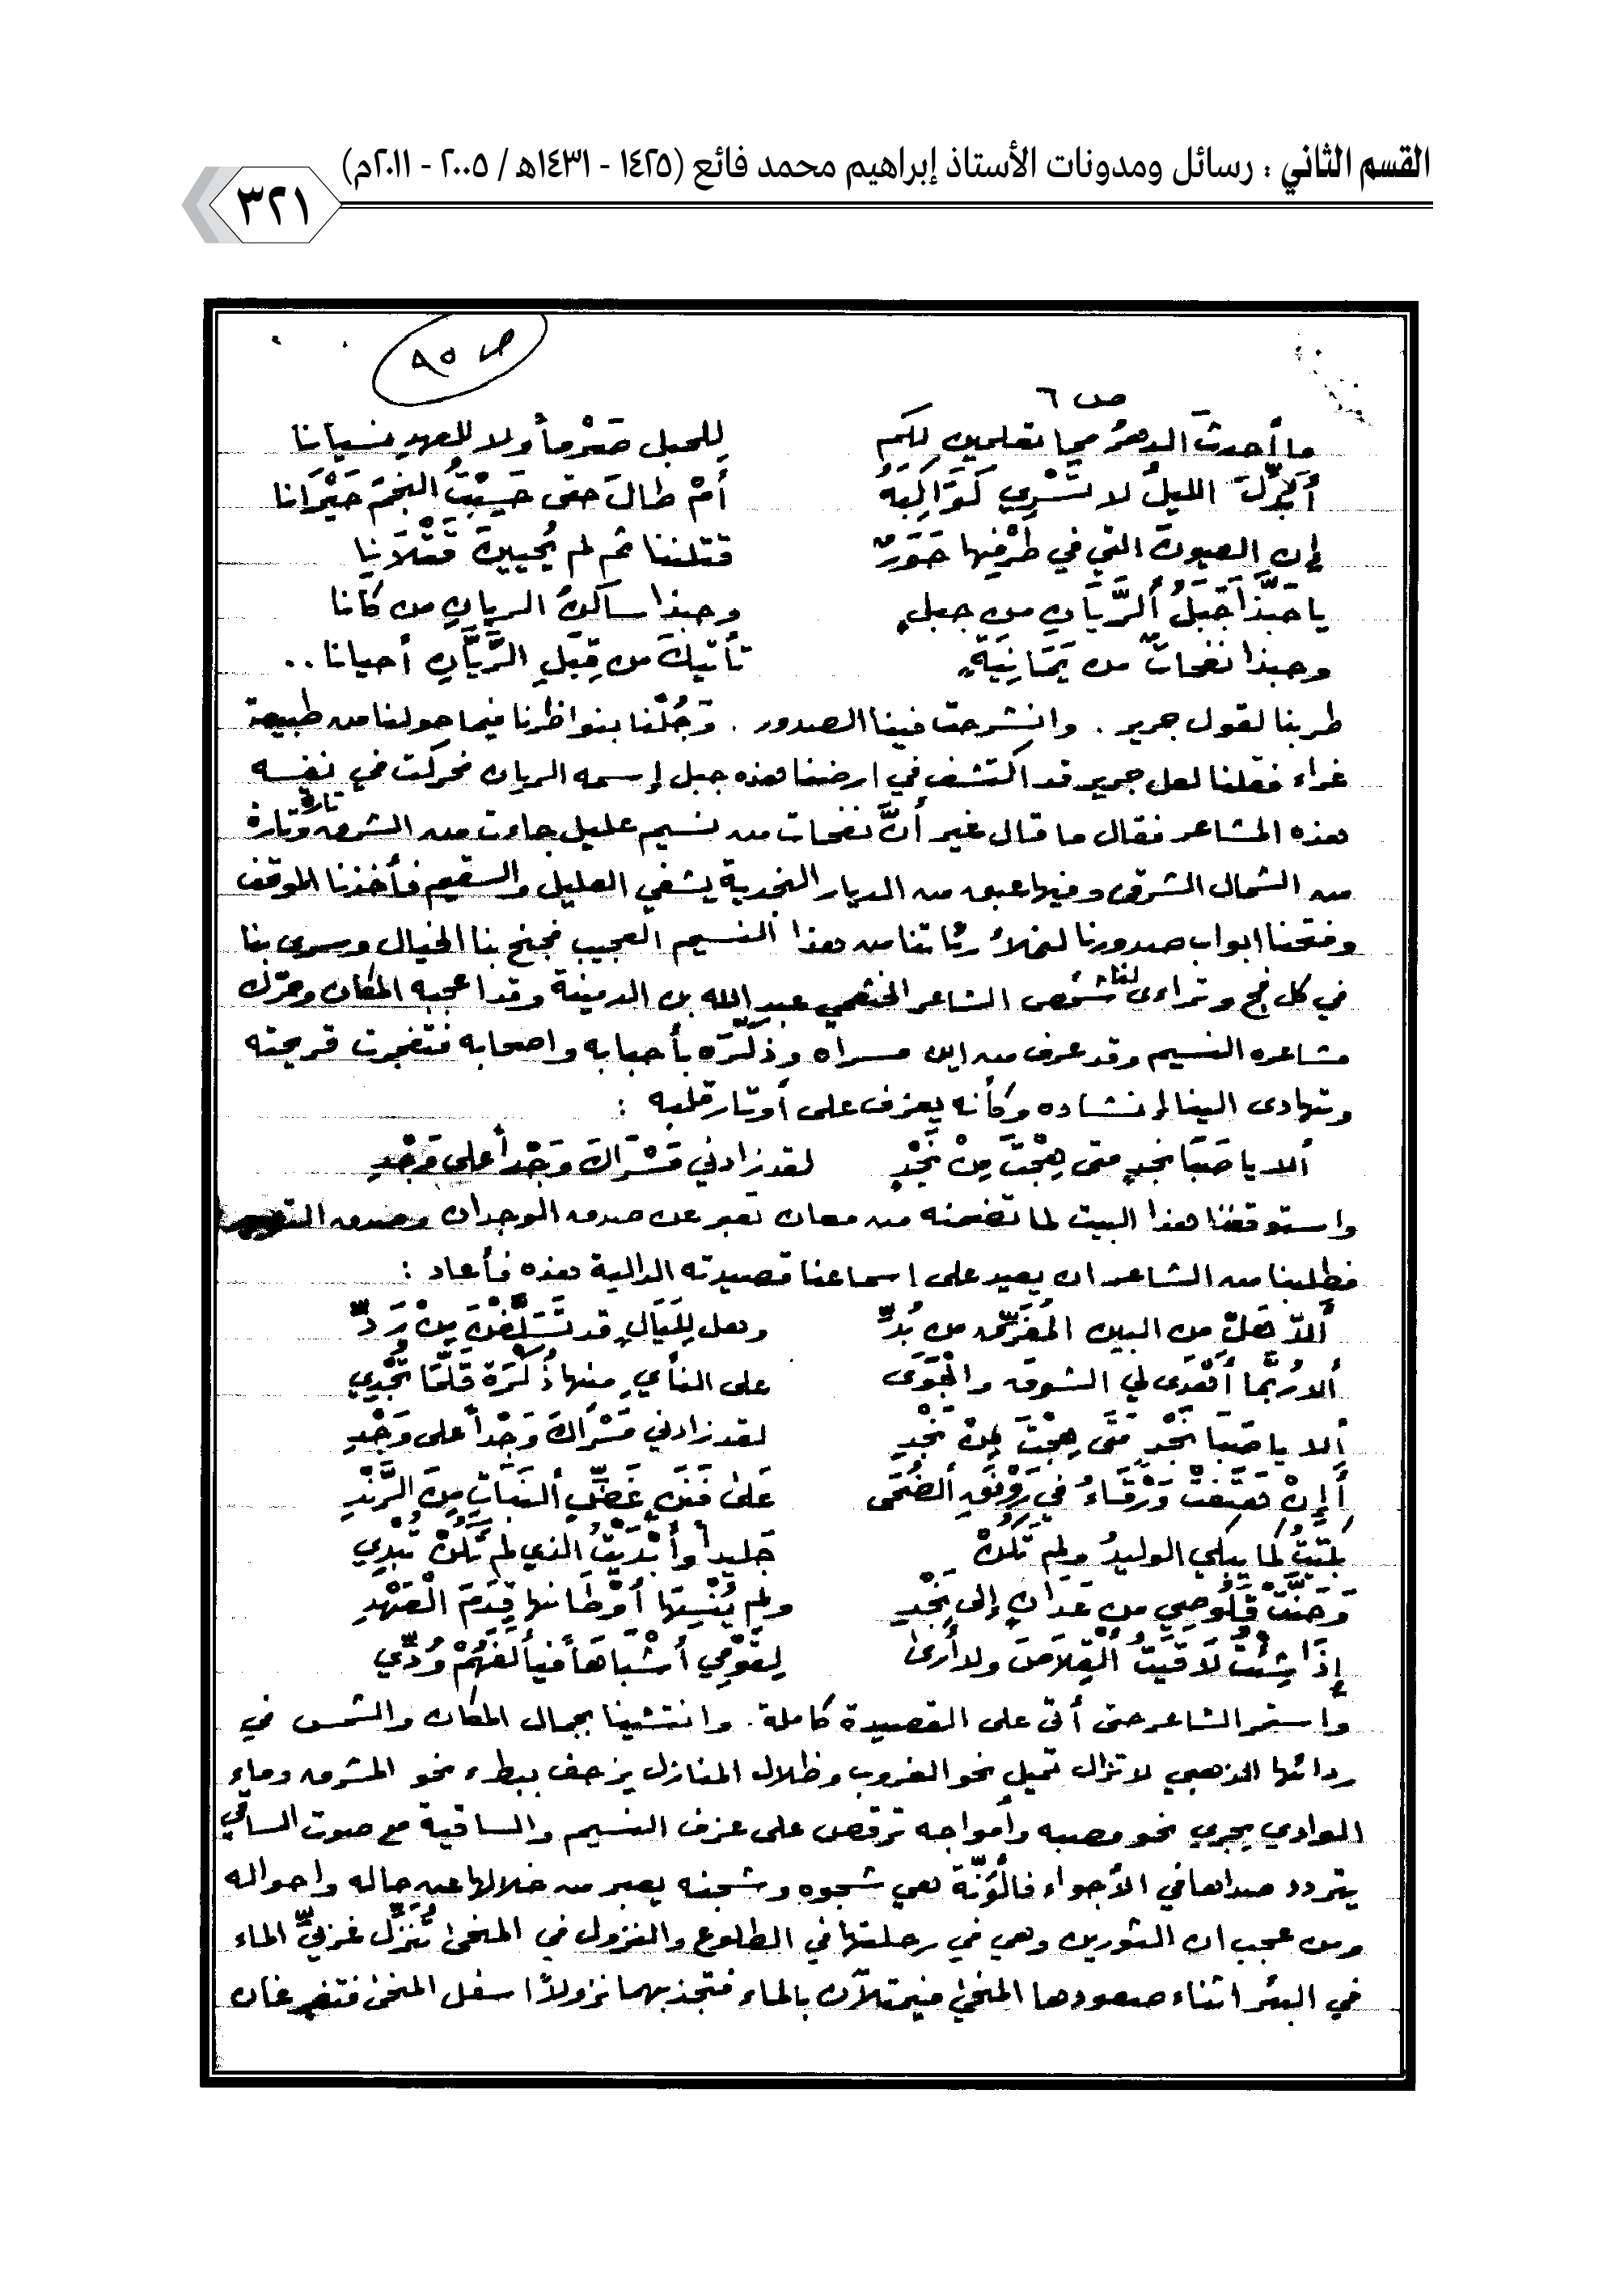 القسم الثاني : رسائل ومدونات الأستاذ إبراهيم محمد فائع (١٤٢٥ - ١٤٣١هـ / ٢٠٠٥ - ٢٠١١م)
٣٢١
ص ٩٥
ص ٦
ما أحدثَ الدهرُ مما تعلمين لكم للحبل صَرْماً ولا للعهدِ نسيانا
أَبُدِّلَ الليلُ لا تَسْرِي كَوَاكِبَهُ أمْ طالَ حتى حَسِبْتُ النجمَ حَيْرَانا
إن العيونَ التي في طرْفِها حَوَرٌ قتلننا ثم لم يُحيينَ قَتْلَانا
يا حَبَّذَا جَبَلُ ألرَّيَّانِ من جبلٍ وحبذا ساكنُ الريانِ من كانا
وحبذا نفحاتٌ من يَمَانِيَةٍ تأتيكَ من قِبَلِ الرَّيَّانِ أحيانا ..
طربنا لقول جرير . وانشرحت فينا الصدور . وَجُلْنا بنواظرنا فيما حولنا من طبيعة
غراء فقلنا لعل جرير قد اكتشف في ارضنا هذه جبل إسمه الريان فحركت في نفسه
هذه المشاعر فقال ما قال غير أنَّ نفحات من نسيم عليل جاءت من الشرق تارة وتارة
من الشمال الشرقي وفيها عبق من الديار النجدية يشفي العليل والسقيم فأخذنا الموقف
وفتحنا ابواب صدورنا لنملأ رئاتنا من هذا النسيم العجيب فجنح بنا الخيال وسرى بنا
في كل فج وتراءى لنا شخص الشاعر الخثعمي عبد الله بن الدمينة وقد اعجبه المكان وحرّك
مشاعره النسيم وقد عرف من اين مسراه وذكَّرَه بأحبابه واصحابه فتفجرت قريحته
وتهادى الينا إنشاده وكأنه يعزف على أوتار قلبه :
ألا يا صَبَا نجدٍ متى هِجْتَ مِنْ نَجْدٍ لقد زادني مَسْرَاكَ وَجْداً على وَجْدِ
واستوقفنا هذا البيت لما تضمنه من معان تعبر عن صدق الوجدان وصدق
فطلبنا من الشاعر ان يعيد على اسماعنا قصيدته الدالية هذه فأعاد :
ألاَ هَلْ من البين المُفَرِّقِ من بُدِّ وهل لِلَيَالٍ قد تَسَلَّفْنَ مِنْ رَدِّ
ألا رُبَّما أهْدَى لي الشوق والجَوَى على النأيِ منها ذُكْرَة قَلَّمَا تُجْدِي
ألا يا صَبَا نَجْدٍ مَتَى هِجْتَ مِنْ نَجْدٍ لقد زادني مَسْرَاكَ وَجْداً على وَجْدِ
أَإِنْ هَتَفَتْ وَرْقَاءُ في رَوْنَقِ الضُحَى عَلَىٰ فَنَنٍ غَضِّ النَبَاتِ مِنَ الرَّنْدِ
بَكَيْتُ كما يبكي الوليدُ ولم تَكُنْ جَليداً وأبْدَيْتُ الذي لم تَكُنْ تُبْدِي
وَحَنَّتْ قَلُوصِي من عَدَانٍ إلى نَجْدٍ ولم يُنْسِهَا أوْطَانَها قِدَمَ العَهْدِ
إِذَا شِئْتُ لاَقَيْتُ الْقِلاَصَ ولا أرى لِقَوْمِي أشْبَاهَاً فيألفهُمْ وُدِّي
واستمر الشاعر حتى أتى على القصيدة كاملة . وانتشينا بجمال المكان والشمس في
ردائها الذهبي لا تزال تميل نحو الغروب وظلال المنازل يزحف ببطء نحو المشرق وماء
الوادي يجري نحو مصبه وأمواجه ترقص على عزف النسيم والساقية مع صوت الساقي
يتردد صداها في الأجواء فالأنّة هي شجوه وشجنه يعبر من خلالها عن حاله واحواله
ومن عجب ان الثورين وهي في رحلتها في الطلوع والنزول في المنحىٰ تُنَزِّل غرْبيّ الماء
في البئر اثناء صعودها المنحىٰ فيمتلآن بالماء فتجذبهما نزولاً اسفل المنحىٰ فتفرغان